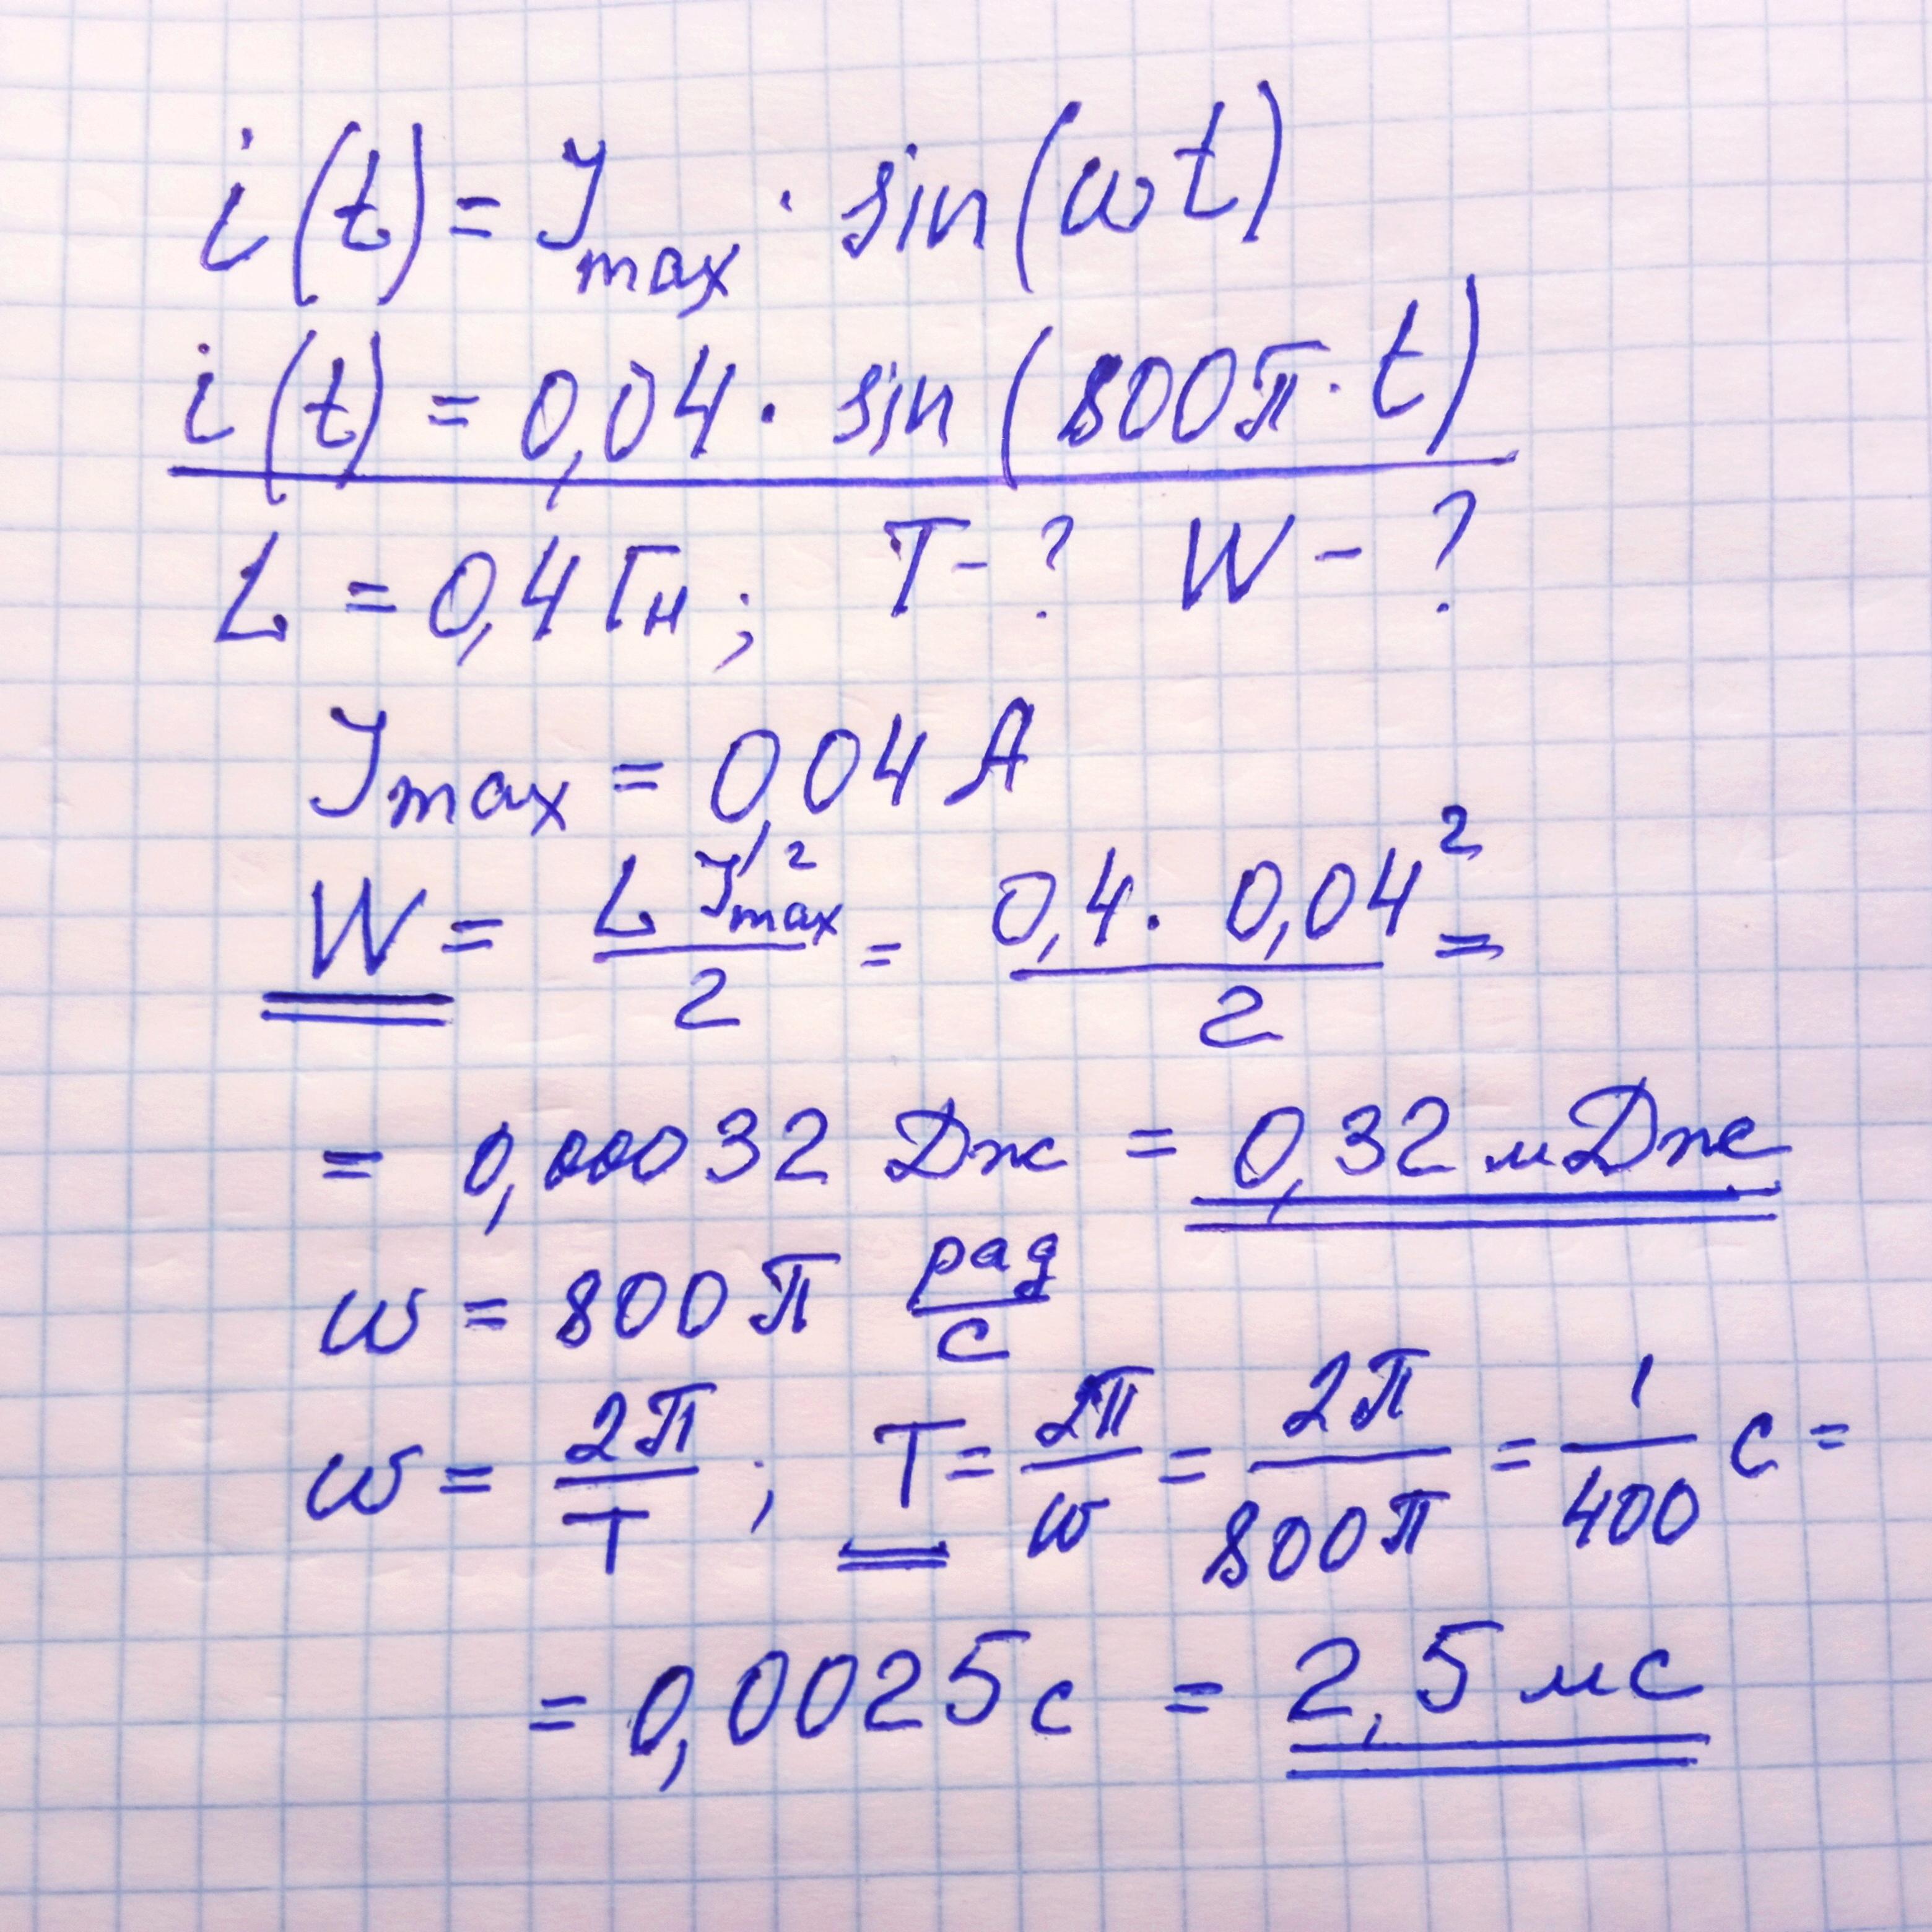 i(t) = I_max · sin(ωt)
i(t) = 0,04 · sin(800π · t)
L = 0,4 Гн; T - ? W - ?
I_max = 0,04 A
W = L I_max² / 2 = 0,4 · 0,04² / 2 =
= 0,00032 Дж = 0,32 мДж
ω = 800π рад/с
ω = 2π/T ; T = 2π/ω = 2π/800π = 1/400 с =
= 0,0025 с = 2,5 мс